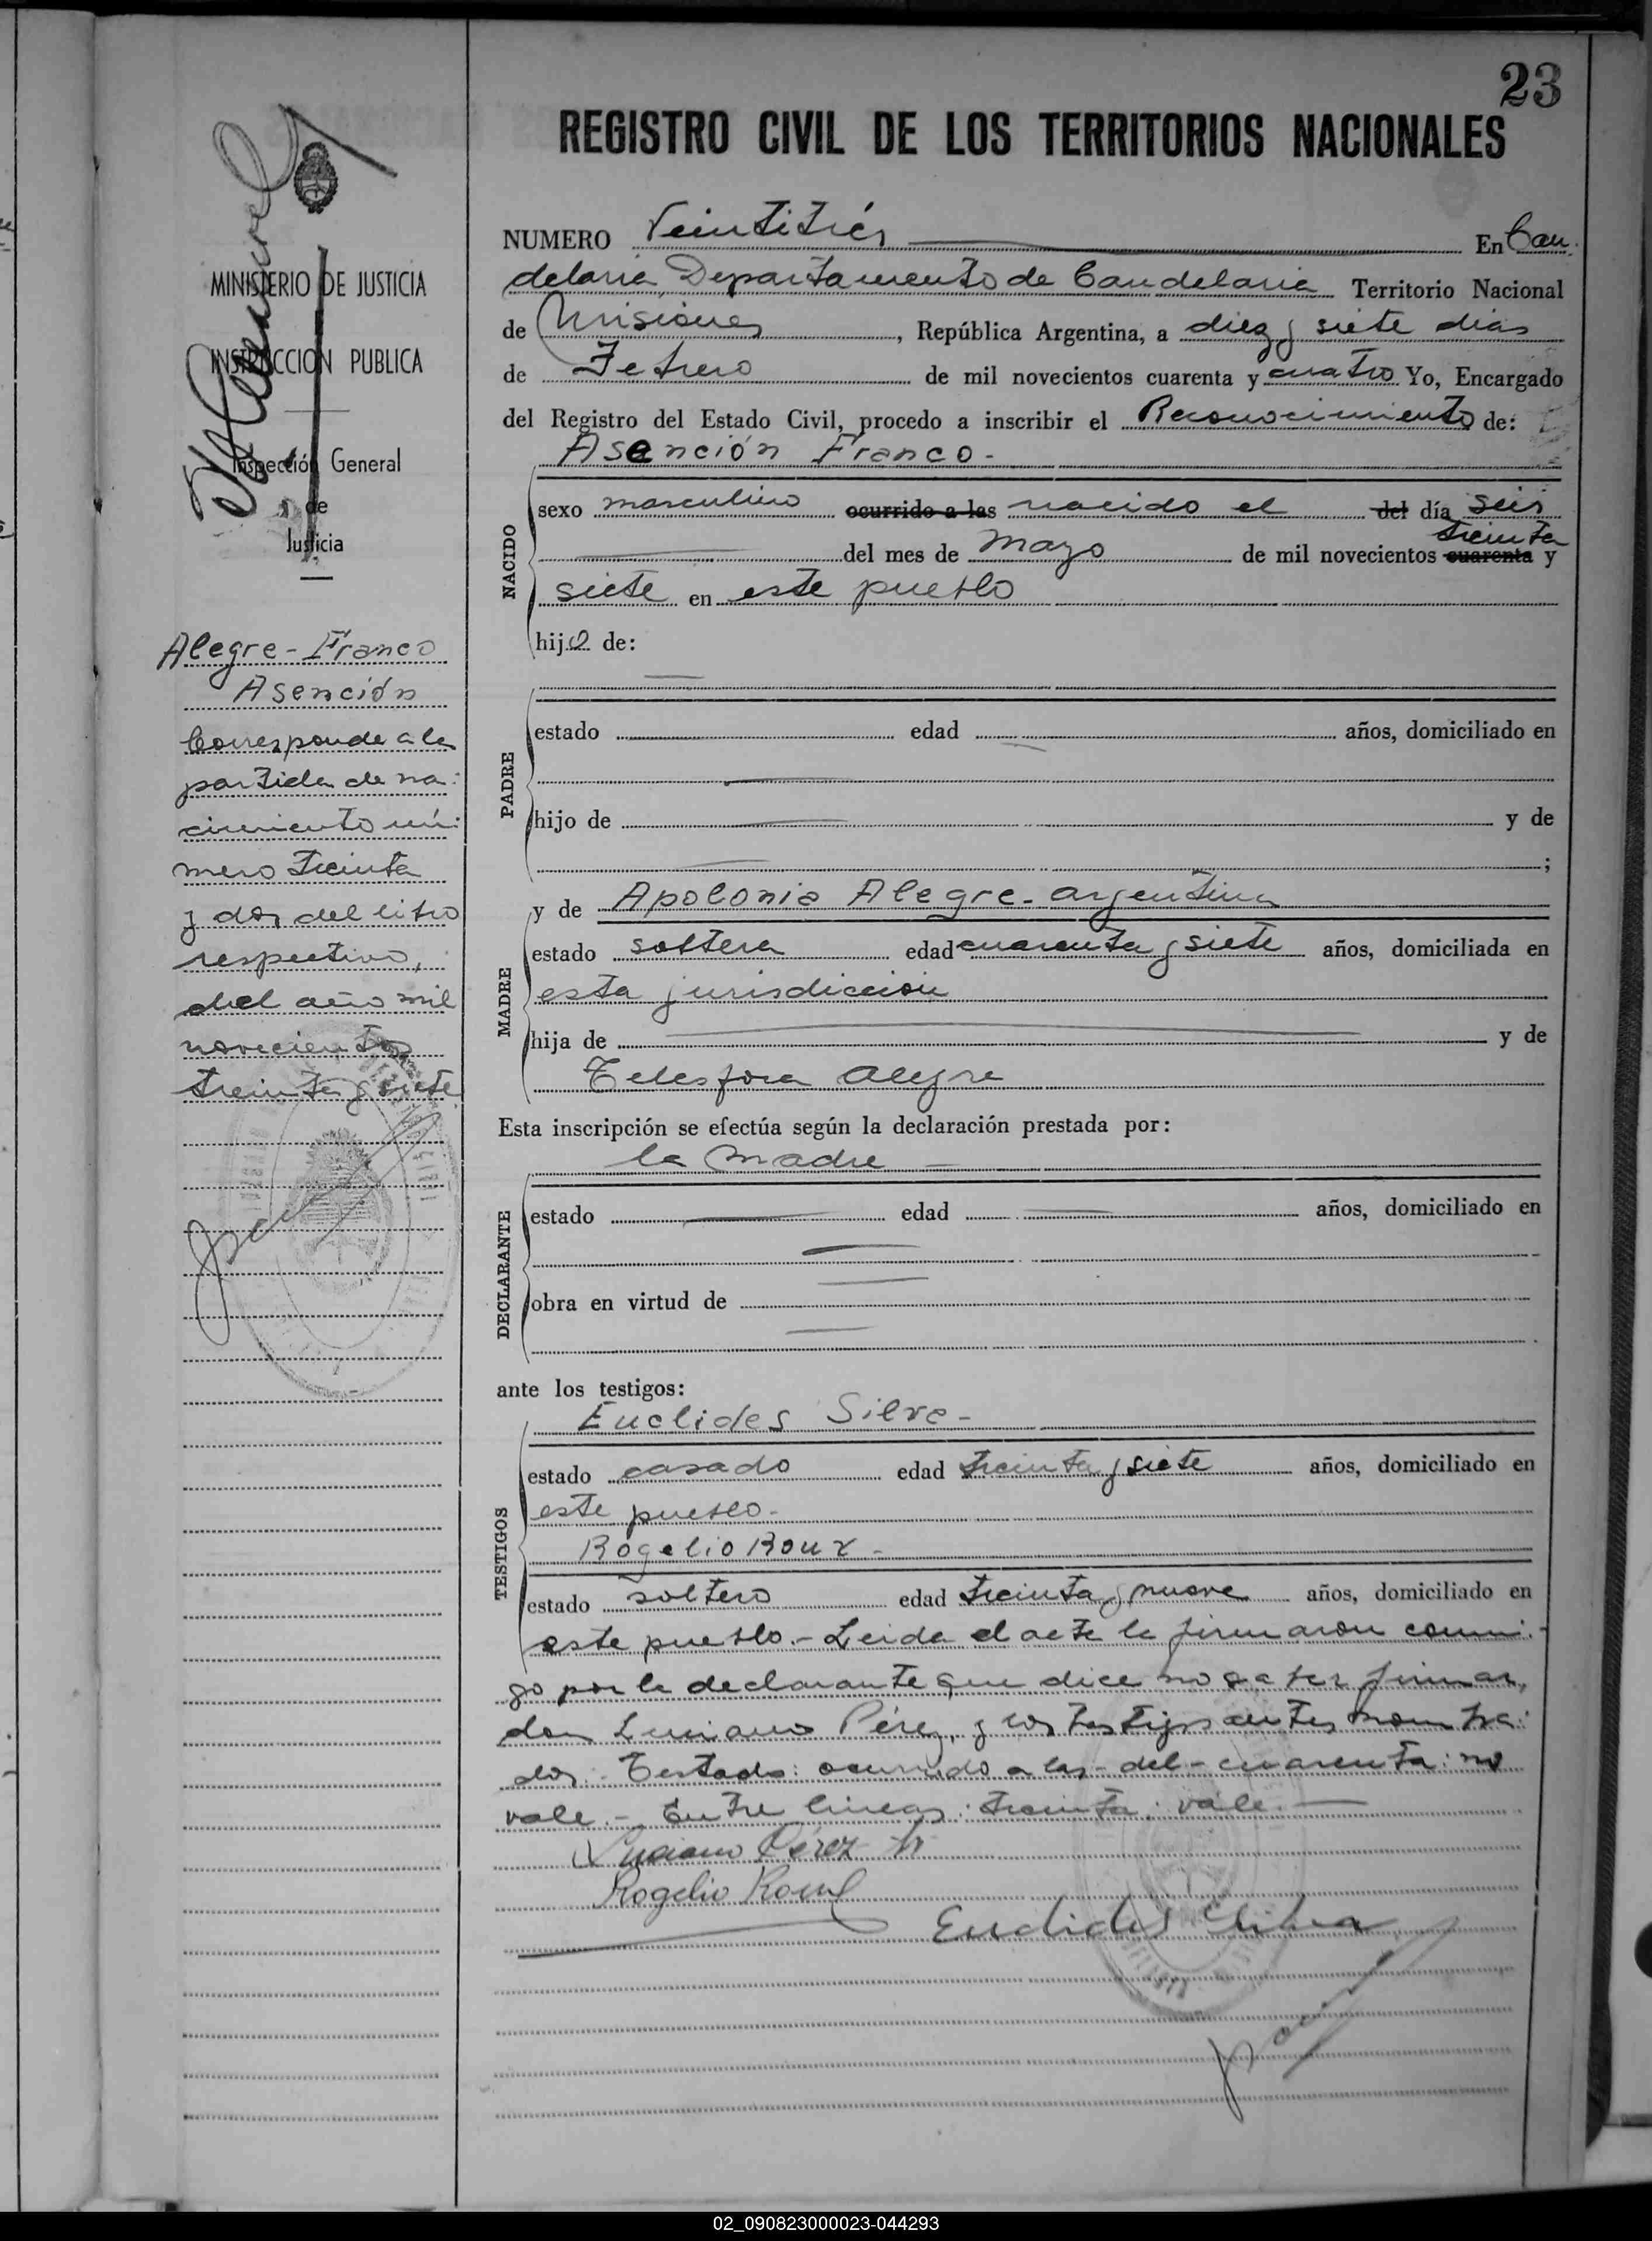 23
REGISTRO CIVIL DE LOS TERRITORIOS NACIONALES
MINISTERIO DE JUSTICIA
INSTRUCCION PUBLICA
Inspección General
de
Justicia
Alegre - Franco
Asención
Corresponde a la
partida de na-
cimiento nú-
mero treinta
y dos del libro
respectivo,
del año mil
novecientos
treinta y siete
NUMERO Veintitrés En Can-
delaria Departamento de Candelaria Territorio Nacional
de Misiones, República Argentina, a diez y siete dias
de Febrero de mil novecientos cuarenta y cuatro Yo, Encargado
del Registro del Estado Civil, procedo a inscribir el Reconocimiento de:
Asención Franco -
NACIDO
sexo masculino ocurrido a las nacido el del día seis
treinta
del mes de Mayo de mil novecientos cuarenta y
siete en este pueblo
hijo de:
PADRE
estado edad años, domiciliado en
hijo de y de
;
y de Apolonia Alegre - argentina
MADRE
estado soltera edad cuarenta y siete años, domiciliada en
esta jurisdicción
hija de y de
Telesfora Alegre
Esta inscripción se efectúa según la declaración prestada por:
la madre -
DECLARANTE
estado edad años, domiciliado en
obra en virtud de
ante los testigos:
Euclides Silva -
TESTIGOS
estado casado edad treinta y siete años, domiciliado en
este pueblo.
Rogelio Roux -
estado soltero edad treinta y nueve años, domiciliado en
este pueblo. - Leida el acta la firmaron conmi-
go por la declarante que dice no saber firmar,
don Luciano Pérez, y los testigos antes nombra-
dos. - Testado: ocurrido a las - del - cuarenta: no
vale. - Entre lineas: treinta: vale. -
Luciano Pérez
Rogelio Roux
Euclides Silva
02_090823000023-044293